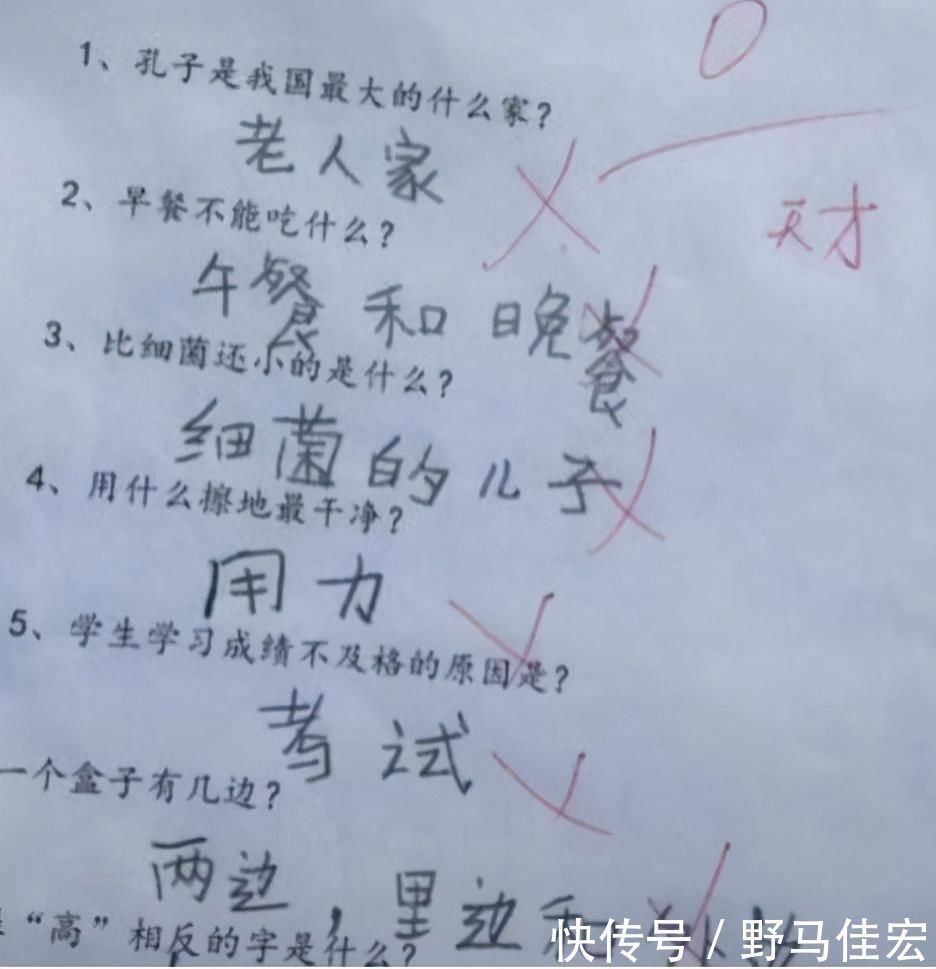 0
1、孔子是我国最大的什么家?
老人家
天才
2、早餐不能吃什么?
午餐和晚餐
3、比细菌还小的是什么?
细菌的儿子
4、用什么擦地最干净?
用力
5、学生学习成绩不及格的原因是?
考试
一个盒子有几边?
两边,里边和
“高”相反的字是什么?
快传号 / 野马佳宏